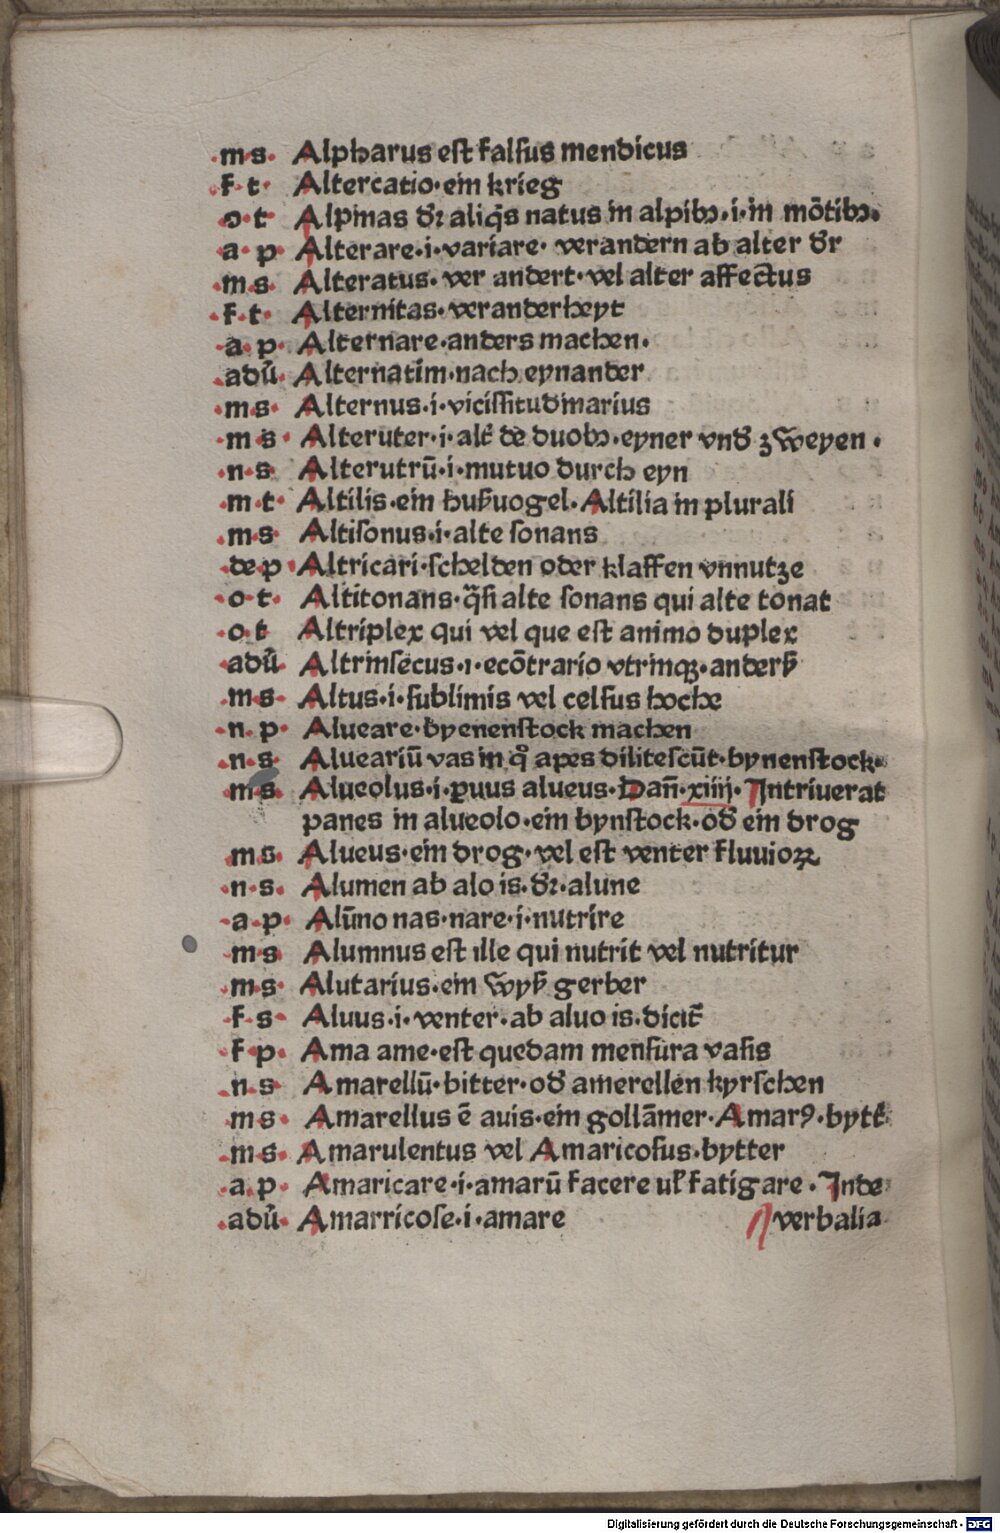 ·m·s· Alpharus est falsus mendicus
·f·t· Altercatio·ein krieg
·o·t Alpinas dꝛ aliq̄s natus in alpibꝫ·i·in mōtibꝫ·
·a·p· Alterare·i·variare·verandern ab alter dꝛ
·m·s· Alteratus·ver andert·vel alter affectus
·f·t· Alternitas·veranderheyt
·a·p· Alternare·anders machen·
·adū· Alternatim·nach eynander
·m·s· Alternus·i·vicissitudinarius
·m·s· Alteruter·i·alt̄ de duobꝫ·eyner vnd̄ zweyen·
·n·s· Alterutrū·i·mutuo durch eyn
·m·t· Altilis·ein hußuogel·Altilia in plurali
·m·s· Altisonus·i·alte sonans
·de p· Altricari·schelden oder klaffen vnnutze
·o·t· Altitonans·q̄si alte sonans qui alte tonat
·o·t Altriplex qui vel que est animo duplex
·adū· Altrinsecus·i·ecōtrario vtrinqꝫ·anderß
·m·s· Altus·i·sublimis vel celsus hoche
·n·p· Alueare·byenenstock machen
·n·s· Alueariū vas in q̊ apes dilitescūt·bynenstock·
·m·s· Alueolus·i·ꝑuus alueus·Dan̄·xiiij·Intriuerat
panes in alueolo·ein bynstock·od̄ ein drog
·m·s· Alueus·ein drog·vel est venter fluuioꝝ
·n·s· Alumen ab alo is·dꝛ·alune
·a·p· Alūno nas·nare·i·nutrire
·m·s Alumnus est ille qui nutrit vel nutritur
·m·s· Alutarius·ein wyß gerber
·f·s· Aluus·i·venter·ab aluo is·dicit᷑
·f·p· Ama ame·est quedam mensura vasis
·n·s Amarellū·bitter·od̄ amerellen kyrschen
·m·s· Amarellus ē auis·ein gollāmer·Amarꝰ·bytt̄
·m·s· Amarulentus vel Amaricosus·bytter
·a·p· Amaricare·i·amarū facere uł fatigare·Inde
·adū· Amarricose·i·amare ¶verbalia
Digitalisierung gefördert durch die Deutsche Forschungsgemeinschaft - DFG